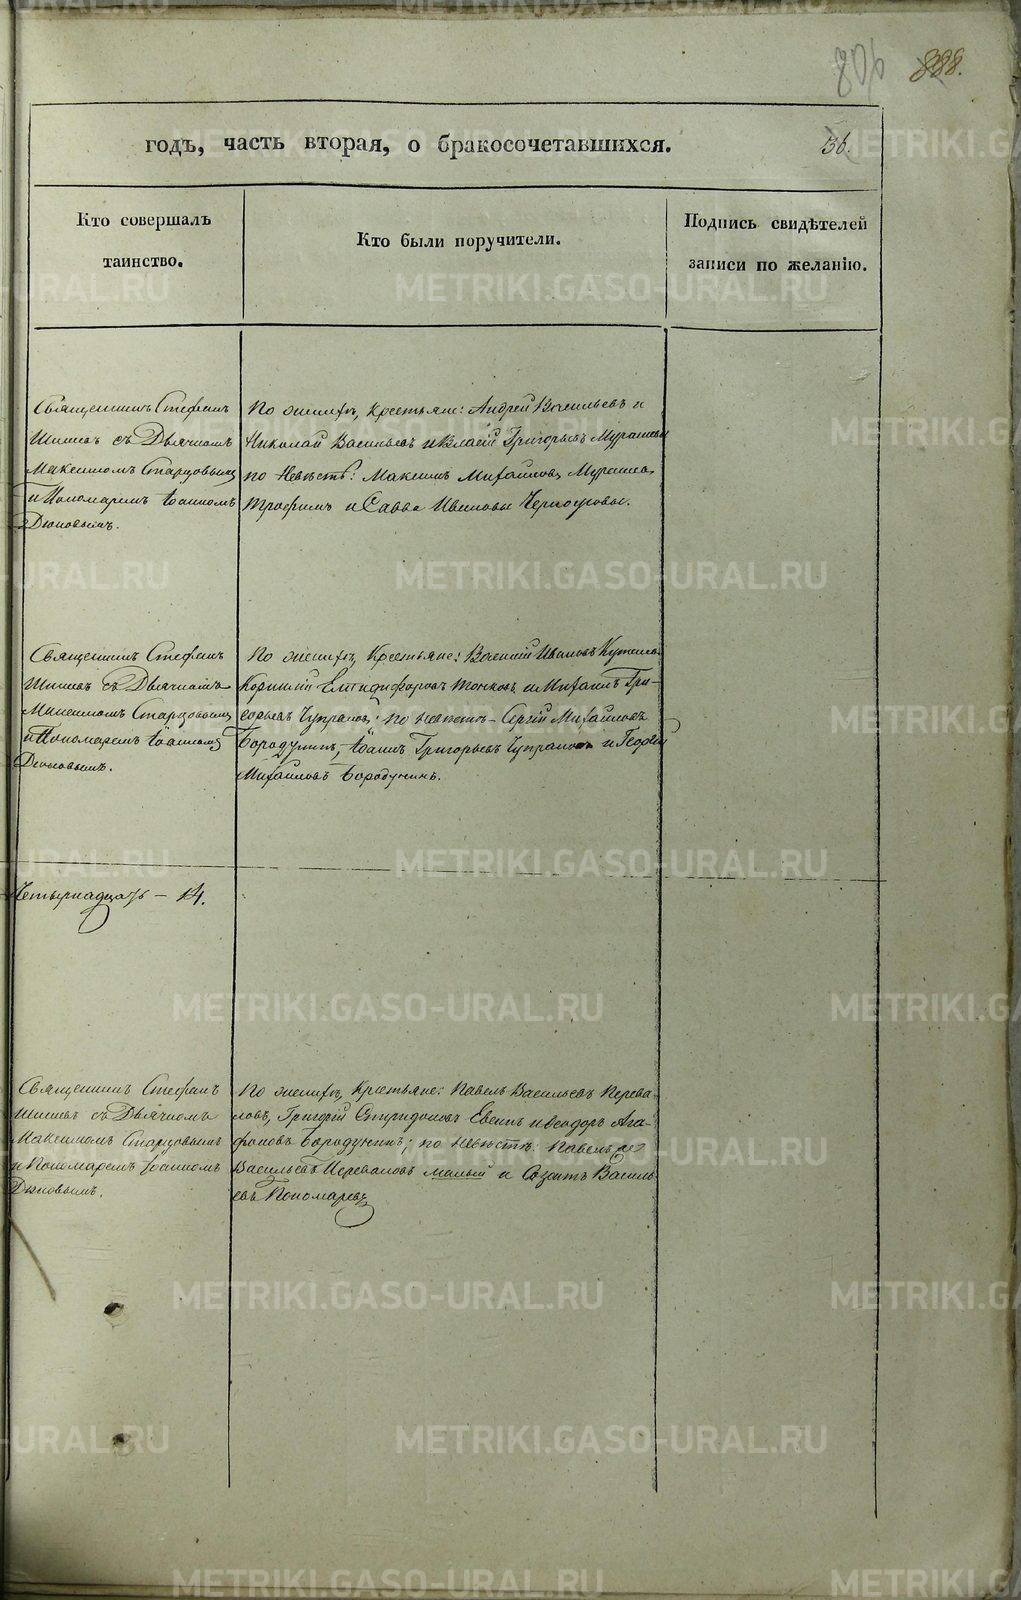 806 888.
годъ, часть вторая, о бракосочетавшихся. 36.
Кто совершалъ
таинство.
Кто были поручители.
Подпись свидѣтелей
записи по желанію.
Священникъ Стефанъ
Шишевъ съ Дьячкомъ
Максимомъ Старцовымъ
и Пономаремъ Іоанномъ
Дюковымъ.
По женихѣ, Крестьяне: Андрей Васильевъ и
Николай Васильевъ и Власій Григорьевъ
по Невѣстѣ: Максимъ Михайловъ
Трофимъ и Савва Ивановы
Священникъ Стефанъ
Шишевъ съ Дьячкомъ
Максимомъ Старцовымъ
и Пономаремъ Іоанномъ
Дюковымъ.
По женихѣ, Крестьяне: Василій Ивановъ
и Михаилъ Гри-
горьевъ Чупраковъ; по невѣстѣ – Сергій Михайловъ
Бородулинъ, Іоаннъ Григорьевъ Чупраковъ и Георгій
Михайловъ Бородулинъ.
Четырнадцать – 14.
Священникъ Стефанъ
Шишевъ съ Дьячкомъ
Максимомъ Старцовымъ
и Пономаремъ Іоанномъ
Дюковымъ.
По женихѣ, Крестьяне: Павелъ Васильевъ Перева-
ловъ, Григорій Спиридоновъ Евсинъ и Ѳеодоръ Ага-
фоновъ Бородулинъ; по невѣстѣ: Павелъ
Васильевъ Переваловъ малый и Созонтъ Василь-
евъ Пономаревъ
METRIKI.GASO-URAL.RU